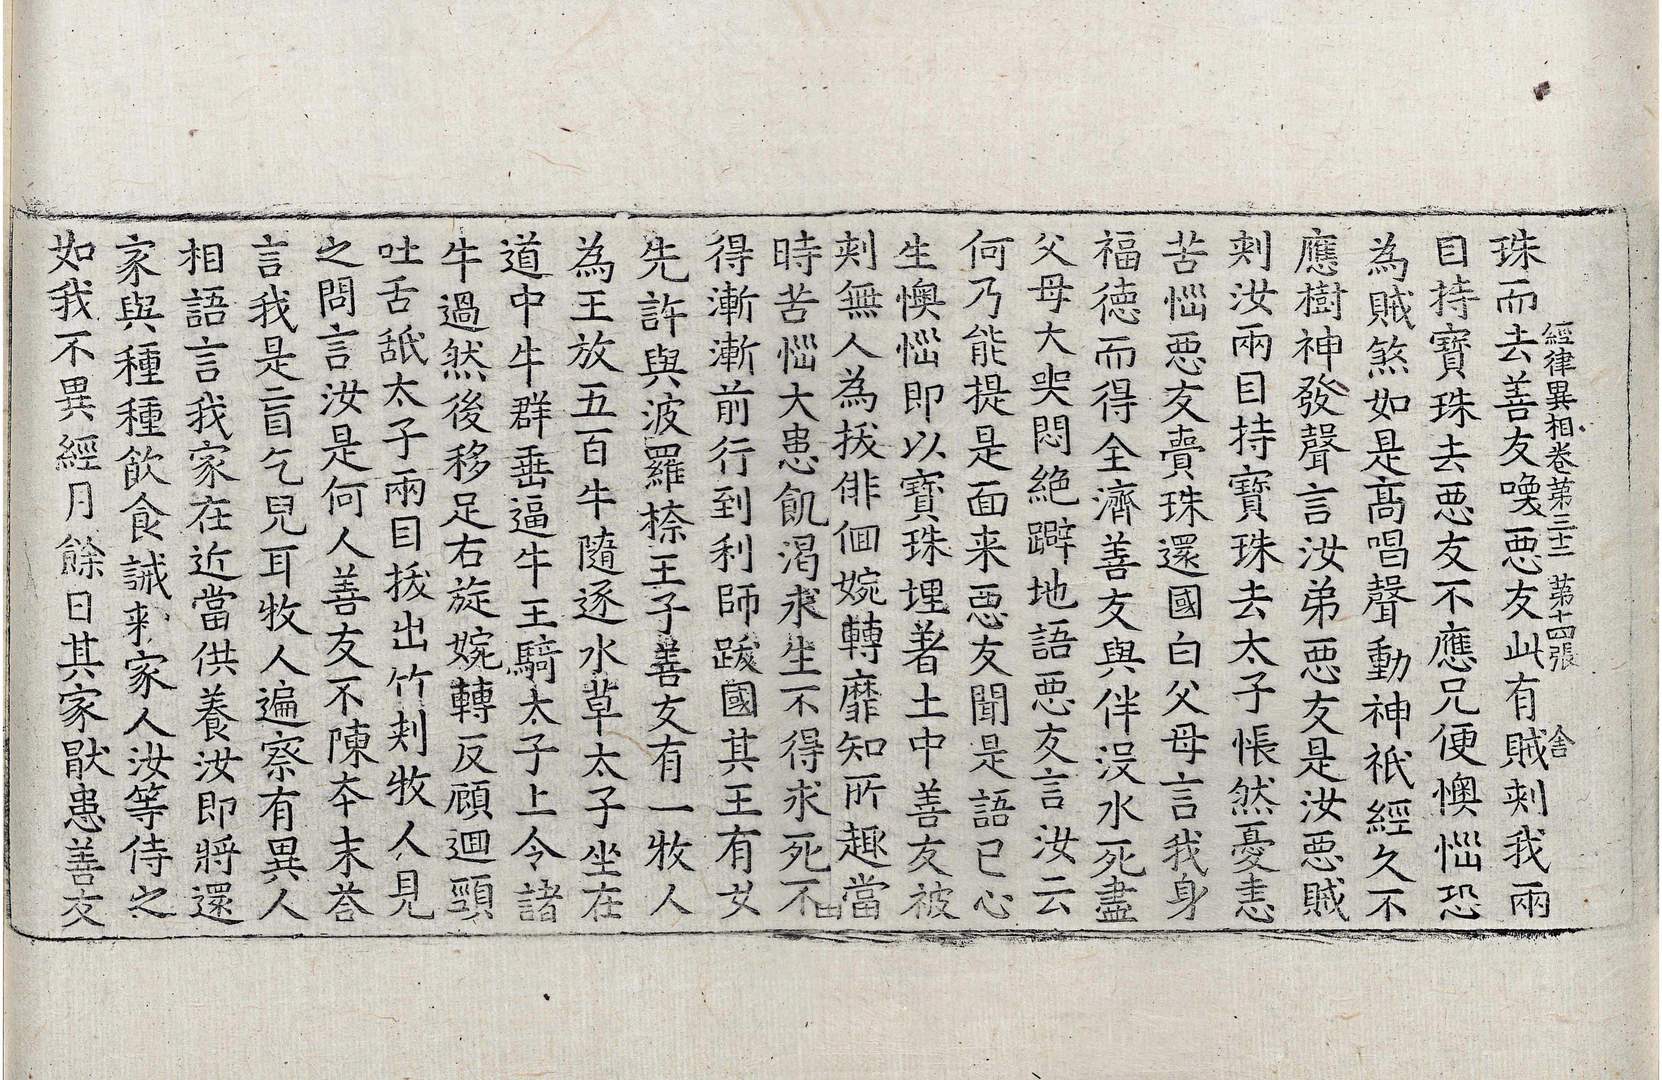 珠而去善友喚惡友此有賊刾我兩
經律異相卷第三十二　第十四張　舍
目持寶珠去惡友不應兄便懊惱恐
為賊煞如是髙唱聲動神祇經久不
應樹神發聲言汝弟惡友是汝惡賊
刾汝兩目持寶珠去太子悵然憂恚
苦惱惡友賷珠還國白父母言我身
福德而得全濟善友與伴沒水死盡
父母大哭悶絶躃地語惡友言汝云
何乃能提是面来惡友聞是語已心
生懊惱即以寶珠埋著土中善友被
刾無人為拔俳徊婉轉靡知所趣當
時苦惱大患飢渇求生不得求死不
得漸漸前行到利師跋國其王有女
先許與波羅㮈王子善友有一牧人
為王放五百牛隨逐水草太子坐在
道中牛群垂逼牛王騎太子上令諸
牛過然後移足右旋婉轉反顧迴頸
吐舌舐太子兩目拔出竹刾牧人見
之問言汝是何人善友不陳夲末荅
言我是盲乞兒耳牧人遍察有異人
相語言我家在近當供養汝即將還
家與種種飲食誡来家人汝等侍之
如我不異經月餘日其家猒患善友